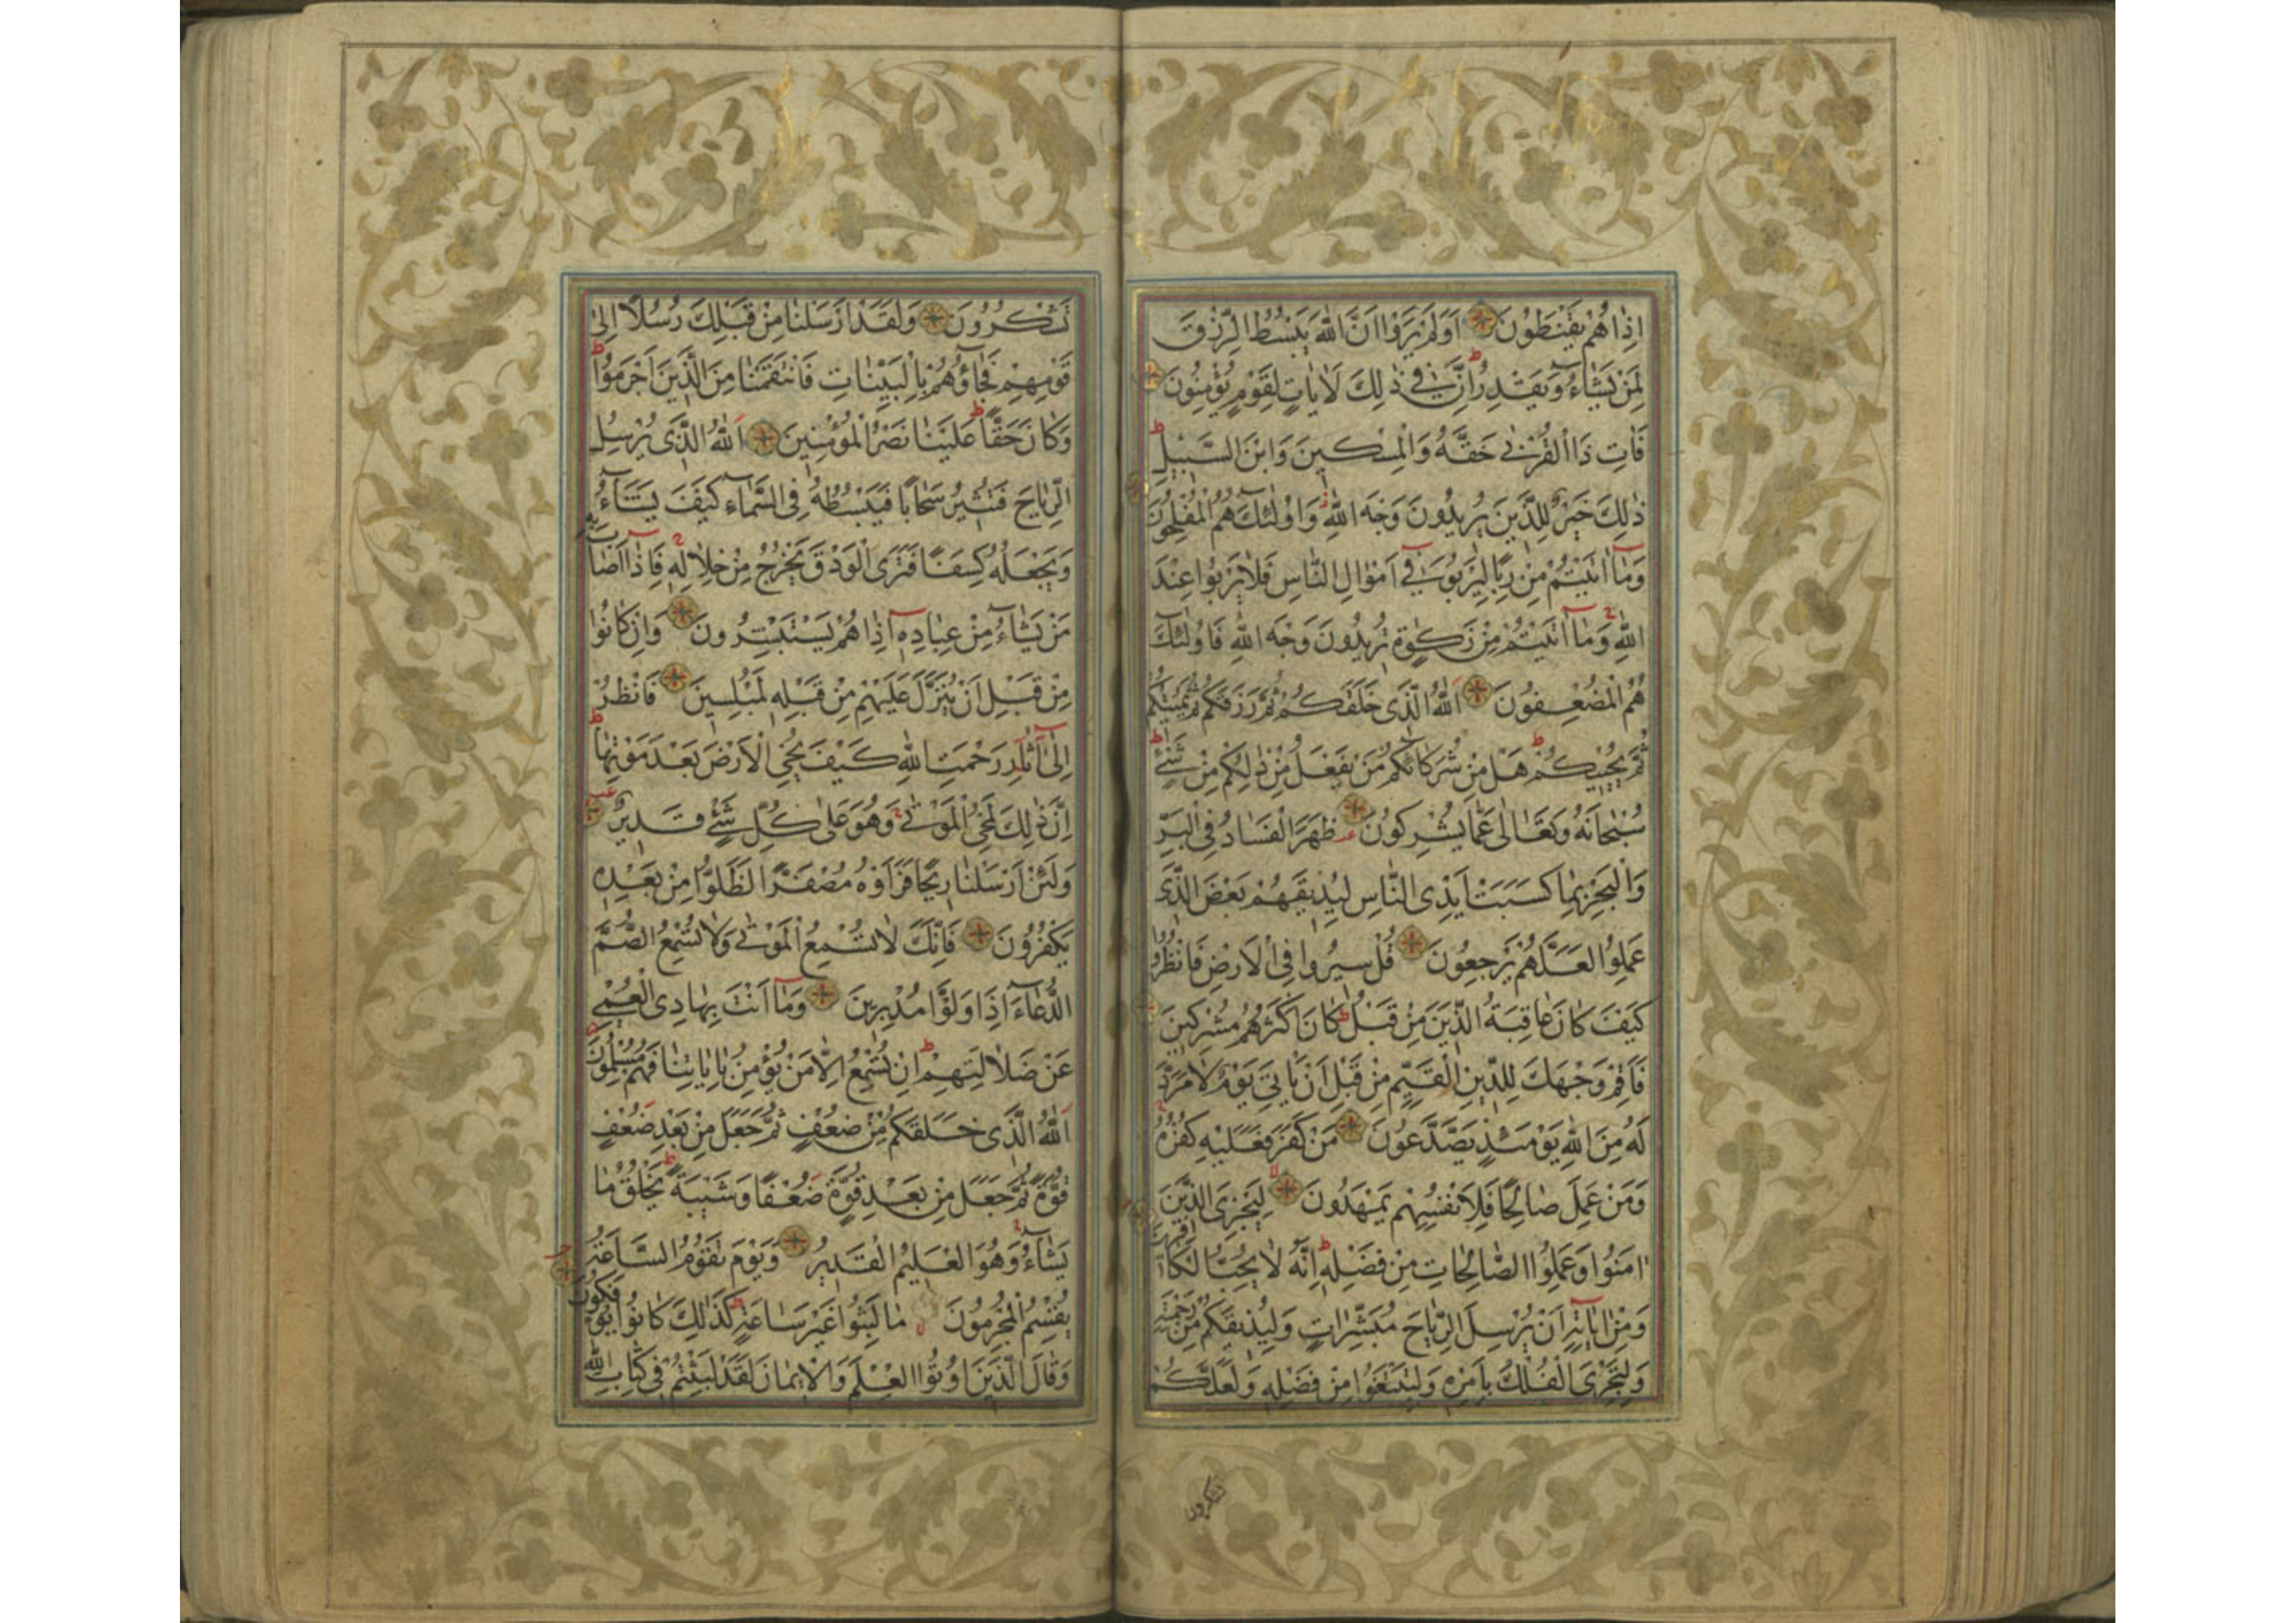 اِذَا هُمْ يَقْنَطُوْنَ اَوَلَمْ يَرَوْا اَنَّ اللّٰهَ يَبْسُطُ الرِّزْقَ
لِمَنْ يَشَآءُ وَيَقْدِرُ اِنَّ فِي ذٰلِكَ لَاٰيَاتٍ لِقَوْمٍ يُؤْمِنُونَ
فَاٰتِ ذَا الْقُرْبٰى حَقَّهُ وَالْمِسْكِينَ وَابْنَ السَّبِيْلِ
ذٰلِكَ خَيْرٌ لِلَّذِينَ يُرِيدُونَ وَجْهَ اللّٰهِ وَاُولٰئِكَ هُمُ الْمُفْلِحُونَ
وَمَا اٰتَيْتُمْ مِنْ رِبًا لِيَرْبُوَا فِي اَمْوَالِ النَّاسِ فَلَا يَرْبُوا عِنْدَ
اللّٰهِ وَمَا اٰتَيْتُمْ مِنْ زَكٰوةٍ تُرِيدُونَ وَجْهَ اللّٰهِ فَاُولٰئِكَ
هُمُ الْمُضْعِفُونَ اَللّٰهُ الَّذِى خَلَقَكُمْ ثُمَّ رَزَقَكُمْ ثُمَّ يُمِيتُكُمْ
ثُمَّ يُحْيِيكُمْ هَلْ مِنْ شُرَكَائِكُمْ مَنْ يَفْعَلُ مِنْ ذٰلِكُمْ مِنْ شَىْءٍ
سُبْحَانَهُ وَتَعَالٰى عَمَّا يُشْرِكُونَ ظَهَرَ الْفَسَادُ فِى الْبَرِّ
وَالْبَحْرِ بِمَا كَسَبَتْ اَيْدِى النَّاسِ لِيُذِيقَهُمْ بَعْضَ الَّذِى
عَمِلُوا لَعَلَّهُمْ يَرْجِعُونَ قُلْ سِيرُوا فِى الْاَرْضِ فَانْظُرُوا
كَيْفَ كَانَ عَاقِبَةُ الَّذِينَ مِنْ قَبْلُ كَانَ اَكْثَرُهُمْ مُشْرِكِينَ
فَاَقِمْ وَجْهَكَ لِلدِّينِ الْقَيِّمِ مِنْ قَبْلِ اَنْ يَاْتِىَ يَوْمٌ لَا مَرَدَّ
لَهُ مِنَ اللّٰهِ يَوْمَئِذٍ يَصَّدَّعُونَ مَنْ كَفَرَ فَعَلَيْهِ كُفْرُهُ
وَمَنْ عَمِلَ صَالِحًا فَلِاَنْفُسِهِمْ يَمْهَدُونَ لِيَجْزِىَ الَّذِينَ
اٰمَنُوا وَعَمِلُوا الصَّالِحَاتِ مِنْ فَضْلِهِ اِنَّهُ لَا يُحِبُّ الْكَافِرِينَ
وَمِنْ اٰيَاتِهِ اَنْ يُرْسِلَ الرِّيَاحَ مُبَشِّرَاتٍ وَلِيُذِيقَكُمْ مِنْ رَحْمَتِهِ
وَلِتَجْرِىَ الْفُلْكُ بِاَمْرِهِ وَلِتَبْتَغُوا مِنْ فَضْلِهِ وَلَعَلَّكُمْ
تشكرون
تَشْكُرُونَ وَلَقَدْ اَرْسَلْنَا مِنْ قَبْلِكَ رُسُلًا اِلٰى
قَوْمِهِمْ فَجَاؤُهُمْ بِالْبَيِّنَاتِ فَانْتَقَمْنَا مِنَ الَّذِينَ اَجْرَمُوا
وَكَانَ حَقًّا عَلَيْنَا نَصْرُ الْمُؤْمِنِينَ اَللّٰهُ الَّذِى يُرْسِلُ
الرِّيَاحَ فَتُثِيرُ سَحَابًا فَيَبْسُطُهُ فِى السَّمَآءِ كَيْفَ يَشَآءُ
وَيَجْعَلُهُ كِسَفًا فَتَرَى الْوَدْقَ يَخْرُجُ مِنْ خِلَالِهِ فَاِذَا اَصَابَ بِهِ
مَنْ يَشَآءُ مِنْ عِبَادِهِ اِذَا هُمْ يَسْتَبْشِرُونَ وَاِنْ كَانُوا
مِنْ قَبْلِ اَنْ يُنَزَّلَ عَلَيْهِمْ مِنْ قَبْلِهِ لَمُبْلِسِينَ فَانْظُرْ
اِلٰى اٰثَارِ رَحْمَتِ اللّٰهِ كَيْفَ يُحْيِى الْاَرْضَ بَعْدَ مَوْتِهَا
اِنَّ ذٰلِكَ لَمُحْيِى الْمَوْتٰى وَهُوَ عَلٰى كُلِّ شَىْءٍ قَدِيرٌ
وَلَئِنْ اَرْسَلْنَا رِيحًا فَرَاَوْهُ مُصْفَرًّا لَظَلُّوا مِنْ بَعْدِهِ
يَكْفُرُونَ فَاِنَّكَ لَا تُسْمِعُ الْمَوْتٰى وَلَا تُسْمِعُ الصُّمَّ
الدُّعَآءَ اِذَا وَلَّوْا مُدْبِرِينَ وَمَا اَنْتَ بِهَادِى الْعُمْىِ
عَنْ ضَلَالَتِهِمْ اِنْ تُسْمِعُ اِلَّا مَنْ يُؤْمِنُ بِاٰيَاتِنَا فَهُمْ مُسْلِمُونَ
اَللّٰهُ الَّذِى خَلَقَكُمْ مِنْ ضَعْفٍ ثُمَّ جَعَلَ مِنْ بَعْدِ ضَعْفٍ
قُوَّةً ثُمَّ جَعَلَ مِنْ بَعْدِ قُوَّةٍ ضَعْفًا وَشَيْبَةً يَخْلُقُ مَا
يَشَآءُ وَهُوَ الْعَلِيمُ الْقَدِيرُ وَيَوْمَ تَقُومُ السَّاعَةُ
يُقْسِمُ الْمُجْرِمُونَ مَا لَبِثُوا غَيْرَ سَاعَةٍ كَذٰلِكَ كَانُوا يُؤْفَكُونَ
وَقَالَ الَّذِينَ اُوتُوا الْعِلْمَ وَالْاِيمَانَ لَقَدْ لَبِثْتُمْ فِى كِتَابِ اللّٰهِ